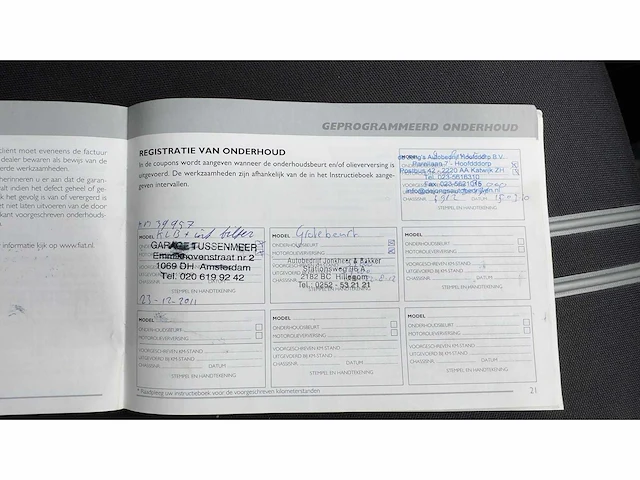 client moet eveneens de factuur
dealer bewaren als bewijs van de
erde werkzaamheden.
erinneren u er aan dat de garan-
valt indien het defect geheel of ge-
k het gevolg is van of verergerd is
et niet laten uitvoeren van de door
kant voorgeschreven onderhouds-
informatie kijk op www.fiat.nl.
GEPROGRAMMEERD ONDERHOUD
REGISTRATIE VAN ONDERHOUD
In de coupons wordt aangeven wanneer de onderhoudsbeurt en/of olieverversing is
uitgevoerd. De werkzaamheden zijn afhankelijk van de in het Instructieboek aange-
geven intervallen.
Autobedrijf Hoofddorp B.V.
Parellaan 7 - Hoofddorp
Postbus 42 - 2220 AA Katwijk ZH
Tel. 023-5616310
Fax 023-5621015
CHASSISNR. DATUM
STEMPEL EN HANDTEKENING
MODEL
GARAGE TUSSENMEER
Emmahovenstraat nr 2
1069 DH Amsterdam
Tel. 020 619 92 42
STEMPEL EN HANDTEKENING
23-12-2011
MODEL Grote beurt
ONDERHOUDSBEURT
MOTOROLIEVERVERSING
Autobedrijf Jonkheer & Bakker
Stationsweg
2182 BC Hillegom
Tel.: 0252 - 53 21 21
STEMPEL EN HANDTEKENING
MODEL
ONDERHOUDSBEURT
MOTOROLIEVERVERSING
VOORGESCHREVEN KM-STAND
UITGEVOERD BIJ KM-STAND
CHASSISNR. DATUM
STEMPEL EN HANDTEKENING
MODEL
ONDERHOUDSBEURT
MOTOROLIEVERVERSING
VOORGESCHREVEN KM-STAND
UITGEVOERD BIJ KM-STAND
CHASSISNR. DATUM
STEMPEL EN HANDTEKENING
MODEL
ONDERHOUDSBEURT
MOTOROLIEVERVERSING
VOORGESCHREVEN KM-STAND
UITGEVOERD BIJ KM-STAND
CHASSISNR. DATUM
STEMPEL EN HANDTEKENING
MODEL
ONDERHOUDSBEURT
MOTOROLIEVERVERSING
VOORGESCHREVEN KM-STAND
UITGEVOERD BIJ KM-STAND
CHASSISNR. DATUM
STEMPEL EN HANDTEKENING
* Raadpleeg uw instructieboek voor de voorgeschreven kilometerstanden
21